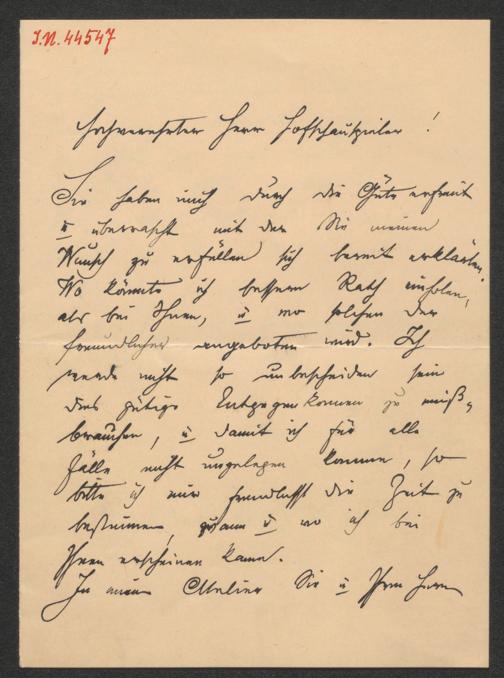 I.N. 44547
Hochverehrter Herr Hofschauspieler!
Sie haben mich durch die Güte erfreut
u überrascht mit der Sie meinen
Wunsch zu erfüllen sich bereit erklärten.
Wo könnte ich bessern Rath einholen,
als bei Ihnen, u wo solcher der
freundlicher angeboten wird. Ich
werde nicht so unbescheiden sein
dies gütige Entgegenkommen zu miß-
brauchen, u damit ich für alle
Fälle nicht ungelegen komme, so
bitte ich nur freundlichst die Zeit zu
bestimmen, wann u wo ich bei
Ihnen erscheinen kann.
In Atelier Sie u Ihren Herrn